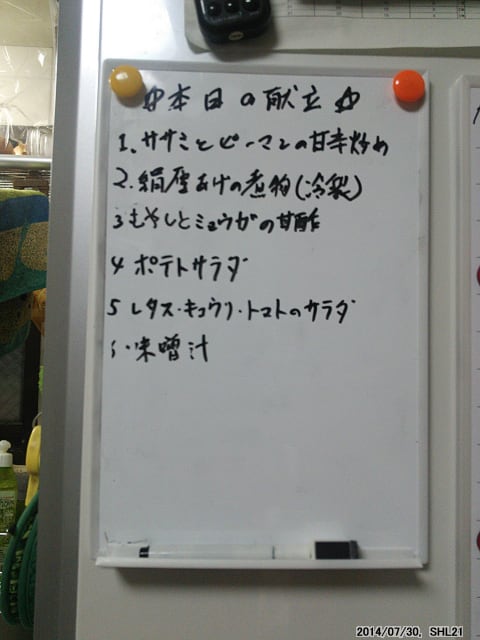 ☆本日の献立☆
1、ササミとピーマンの甘辛炒め
2、絹厚あげの煮物(冷製)
3 もやしとミョウガの甘酢
4 ポテトサラダ
5 レタス・キュウリ・トマトのサラダ
6・味噌汁
2014/07/30, SHL21